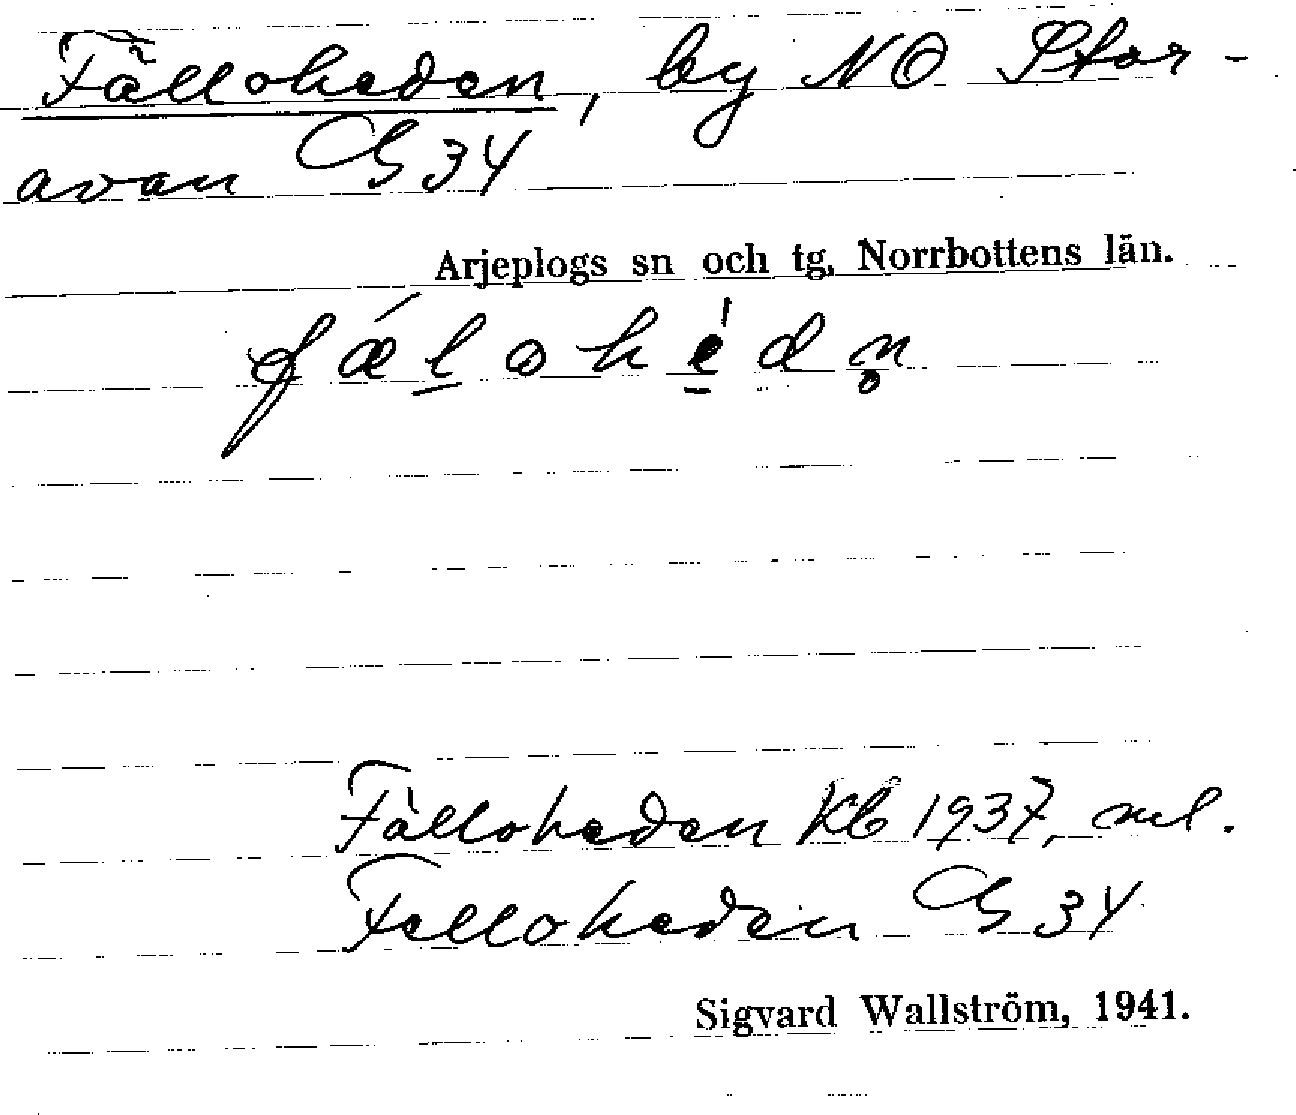 Fälloheden, by NO Stor-
avan G 34
Arjeplogs sn och tg, Norrbottens län.
fǽl̲ohé̲dn̥
Fälloheden Kb 1937, ml.
Felloheden G 34
Sigvard Wallström, 1941.